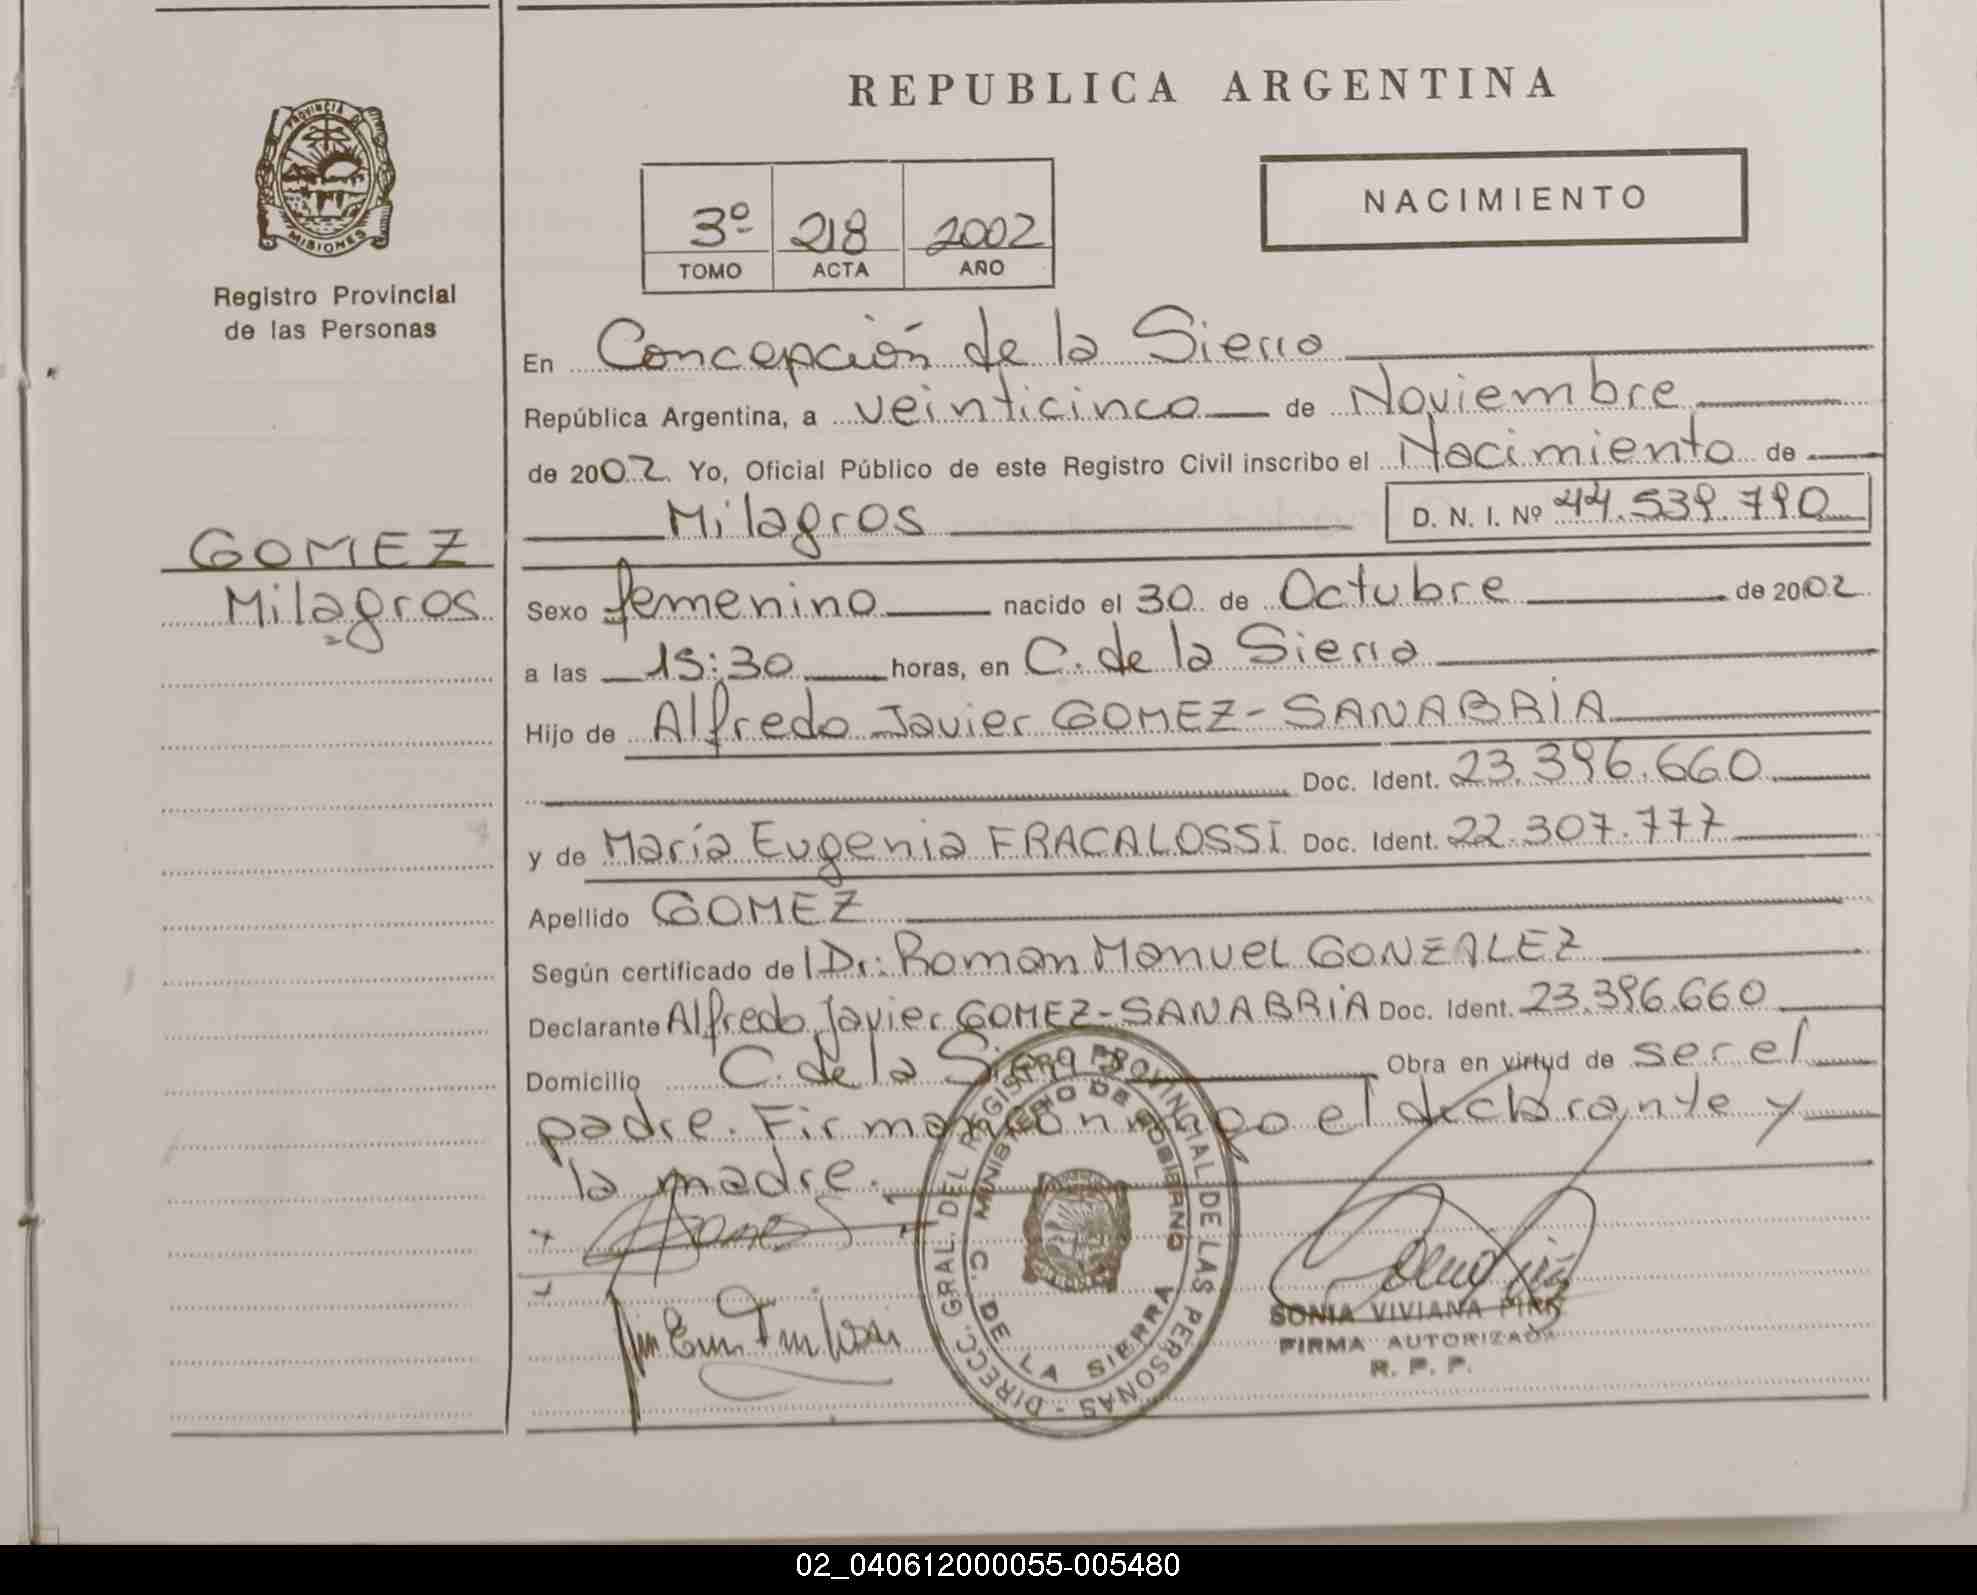 REPUBLICA ARGENTINA
PROVINCIA DE MISIONES
Registro Provincial
de las Personas
3º 218 2002
TOMO ACTA AÑO
NACIMIENTO
En Concepción de la Sierra
República Argentina, a veinticinco de Noviembre
de 2002 Yo, Oficial Público de este Registro Civil inscribo el Nacimiento de
Milagros D. N. I. Nº 44.539.790
GOMEZ
Milagros
Sexo femenino nacido el 30 de Octubre de 2002
a las 15:30 horas, en C. de la Sierra
Hijo de Alfredo Javier GOMEZ-SANABRIA
Doc. Ident. 23.396.660
y de María Eugenia FRACALOSSI Doc. Ident. 22.307.777
Apellido GOMEZ
Según certificado del Dr: Roman Manuel GONZALEZ
Declarante Alfredo Javier GOMEZ-SANABRIA Doc. Ident. 23.396.660
Domicilio C. de la Sierra Obra en virtud de ser el
padre. Firman conmigo el declarante y
la madre.
DIRECC. GRAL. DEL REGISTRO PROVINCIAL DE LAS PERSONAS -
MINISTERIO DE GOBIERNO
C. DE LA SIERRA
SONIA VIVIANA
FIRMA AUTORIZADA
R. P. P.
02_040612000055-005480